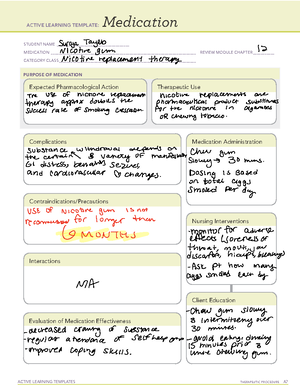 ACTIVE LEARNING TEMPLATE: Medication
STUDENT NAME
MEDICATION Nicotine gum REVIEW MODULE CHAPTER 12
CATEGORY CLASS Nicotine replacement therapy
PURPOSE OF MEDICATION
Expected Pharmacological Action
The use of nicotine replacement
therapy approx doubles the
success rate of smoking cessation
Therapeutic Use
Nicotine replacements are
pharmaceutical product substitutes
for the nicotine in cigarettes
or chewing tobacco.
Complications
Substance withdrawal depends on
the certain & variety of
GI distress seizures
and cardiovascular changes.
Medication Administration
Chew gum
Slowly → 30 mins.
Dosing is based
on total ciggs
smoked per day.
Contraindications/Precautions
USE of Nicotine gum is not
recommended for longer than
6 MONTHS
Nursing Interventions
-monitor for adverse
effects (soreness of
throat, mouth, jaw
discomfort, hiccups,
-Ask pt how many
ciggs smoked each
Interactions
N/A
Client Education
-Chew gum slowly
& intermittently over
30 minutes.
-avoid eating drinking
15 minutes prior &
while chewing gum.
Evaluation of Medication Effectiveness
-decreased craving of substance
-regular attendance of self help
-improved coping skills.
ACTIVE LEARNING TEMPLATES
THERAPEUTIC PROCEDURE A7